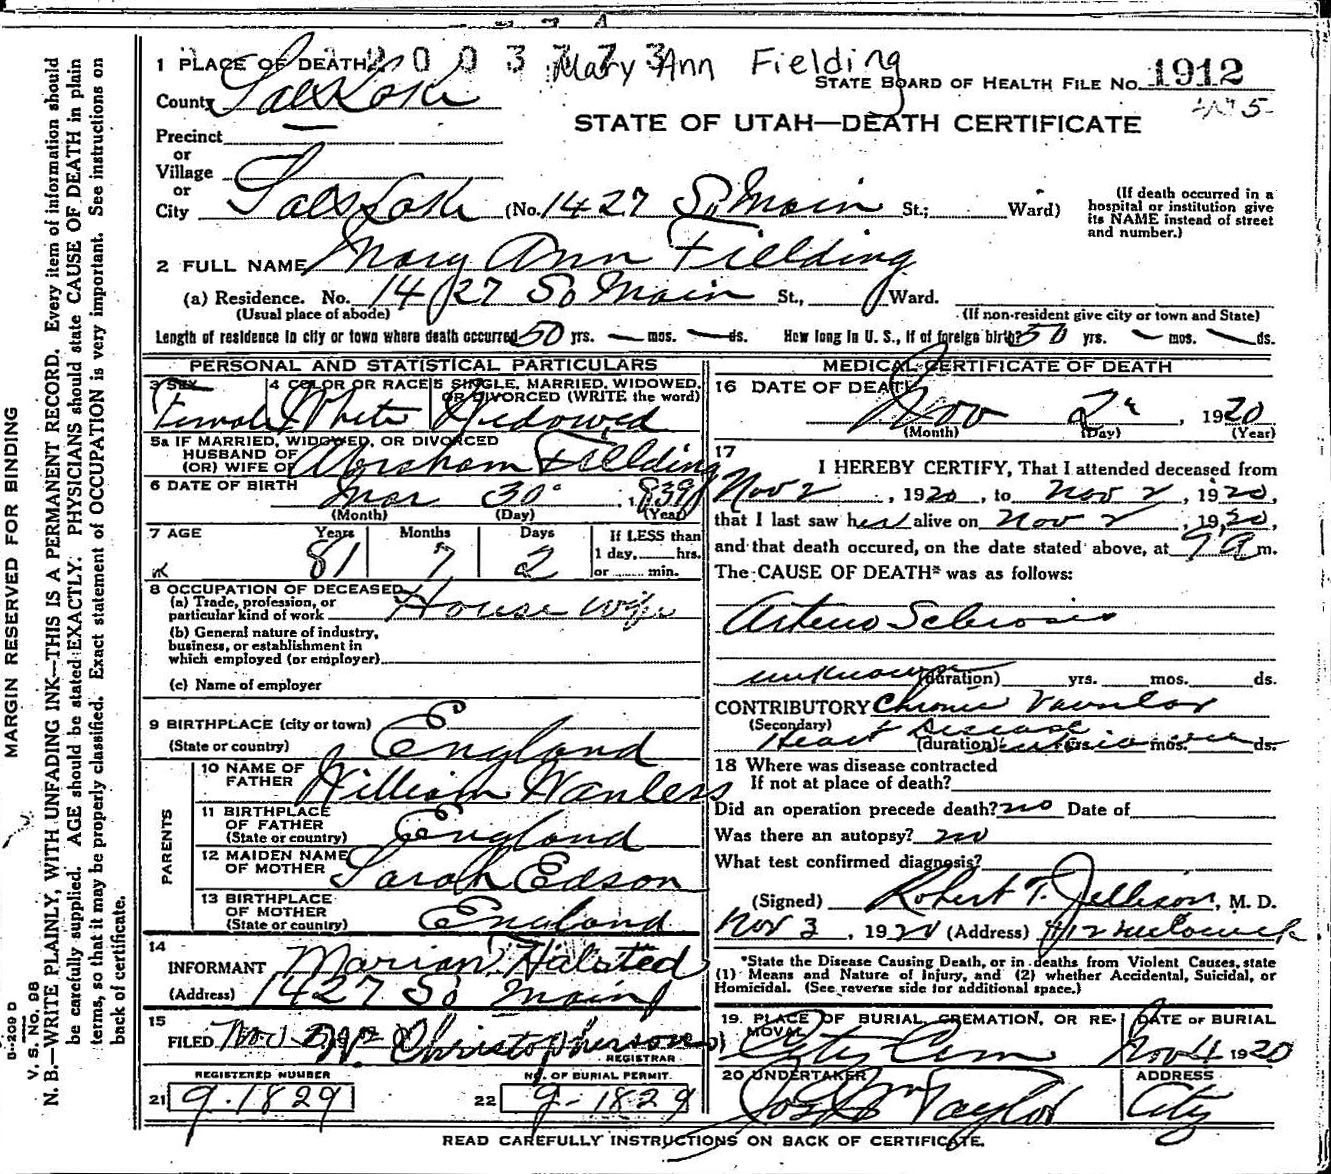 MARGIN RESERVED FOR BINDING
B-2009 D
V. S. No. 98
N. B.—WRITE PLAINLY, WITH UNFADING INK—THIS IS A PERMANENT RECORD. Every item of information should
be carefully supplied. AGE should be stated EXACTLY. PHYSICIANS should state CAUSE OF DEATH in plain
terms, so that it may be properly classified. Exact statement of OCCUPATION is very important. See instructions on
back of certificate.
2003773 Mary Ann Fielding
1 PLACE OF DEATH
STATE BOARD OF HEALTH FILE No. 1912
County Salt Lake
STATE OF UTAH—DEATH CERTIFICATE
Precinct —
or
Village
or
City Salt Lake (No. 1427 So Main St.; Ward)
(If death occurred in a
hospital or institution give
its NAME instead of street
and number.)
2 FULL NAME Mary Ann Fielding
(a) Residence. No. 1427 So Main St., Ward.
(Usual place of abode) (If non-resident give city or town and State)
Length of residence in city or town where death occurred 50 yrs. — mos. — ds. How long in U. S., if of foreign birth? 50 yrs. — mos. — ds.
PERSONAL AND STATISTICAL PARTICULARS
3 SEX 4 COLOR OR RACE 5 SINGLE, MARRIED, WIDOWED,
OR DIVORCED (WRITE the word)
Female White Widowed
5a IF MARRIED, WIDOWED, OR DIVORCED
HUSBAND OF
(OR) WIFE OF Abraham Fielding
6 DATE OF BIRTH Mar 30 1839
(Month) (Day) (Year)
7 AGE Years Months Days If LESS than
81 7 2 1 day, hrs.
or min.
8 OCCUPATION OF DECEASED
(a) Trade, profession, or
particular kind of work House wife
(b) General nature of industry,
business, or establishment in
which employed (or employer)
(c) Name of employer
9 BIRTHPLACE (city or town)
(State or country) England
PARENTS
10 NAME OF
FATHER William Wanless
11 BIRTHPLACE
OF FATHER
(State or country) England
12 MAIDEN NAME
OF MOTHER Sarah Edson
13 BIRTHPLACE
OF MOTHER
(State or country) England
14
INFORMANT Marian Halsted
(Address) 1427 So Main
15
FILED Nov Christopherson
REGISTRAR
REGISTERED NUMBER NO. OF BURIAL PERMIT.
21 9-1829 22 9-1829
MEDICAL CERTIFICATE OF DEATH
16 DATE OF DEATH
Nov 2 , 1920
(Month) (Day) (Year)
17
I HEREBY CERTIFY, That I attended deceased from
Nov 2 , 1920, to Nov 2, 1920,
that I last saw her alive on Nov 2, 1920,
and that death occured, on the date stated above, at 7 a m.
The CAUSE OF DEATH* was as follows:
Arterio Sclerosis
unknown (duration) yrs. mos. ds.
CONTRIBUTORY Chronic Valvular
(Secondary) Heart Disease
(duration) yrs. mos. ds.
18 Where was disease contracted
If not at place of death?
Did an operation precede death? no Date of
Was there an autopsy? no
What test confirmed diagnosis?
(Signed) Robert T. Jellison, M. D.
Nov 3, 1920 (Address)
*State the Disease Causing Death, or in deaths from Violent Causes, state
(1) Means and Nature of Injury, and (2) whether Accidental, Suicidal, or
Homicidal. (See reverse side for additional space.)
19. PLACE OF BURIAL, CREMATION, OR RE-
MOVAL City Cem
DATE OF BURIAL
Nov 4 1920
20 UNDERTAKER Jos Wm Taylor
ADDRESS
City
READ CAREFULLY INSTRUCTIONS ON BACK OF CERTIFICATE.